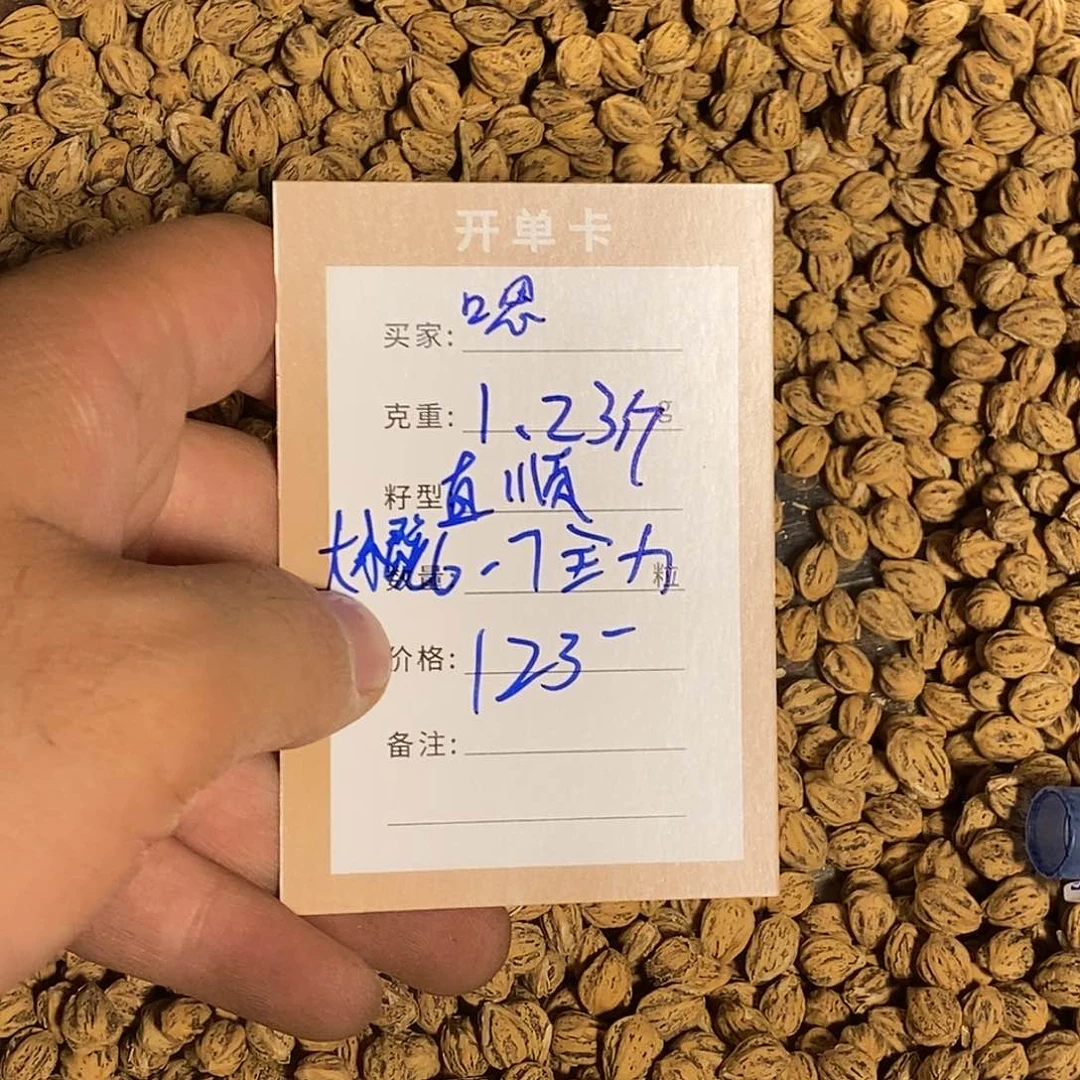 开单卡
买家: 嗯
克重: 1.23斤 g
籽型 直顺
数量: 6.-7主力 粒
价格: 123-
备注: